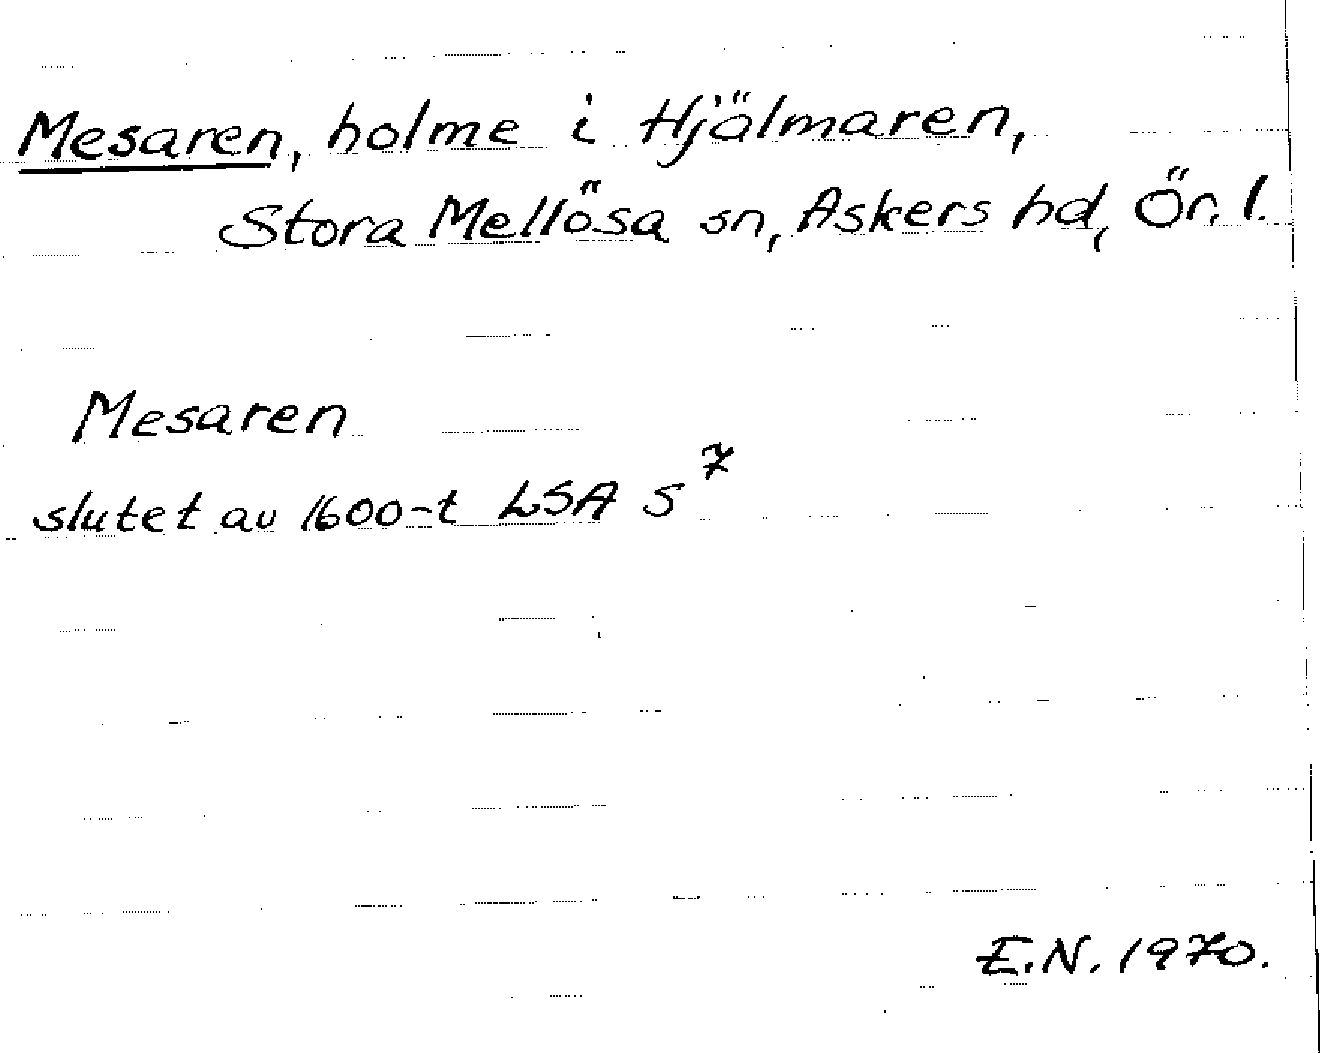 Mesaren, holme i Hjälmaren,
Stora Mellösa sn, Askers hd, Ör. l.
Mesaren
slutet av 1600-t LSA S⁷
E.N. 1970.